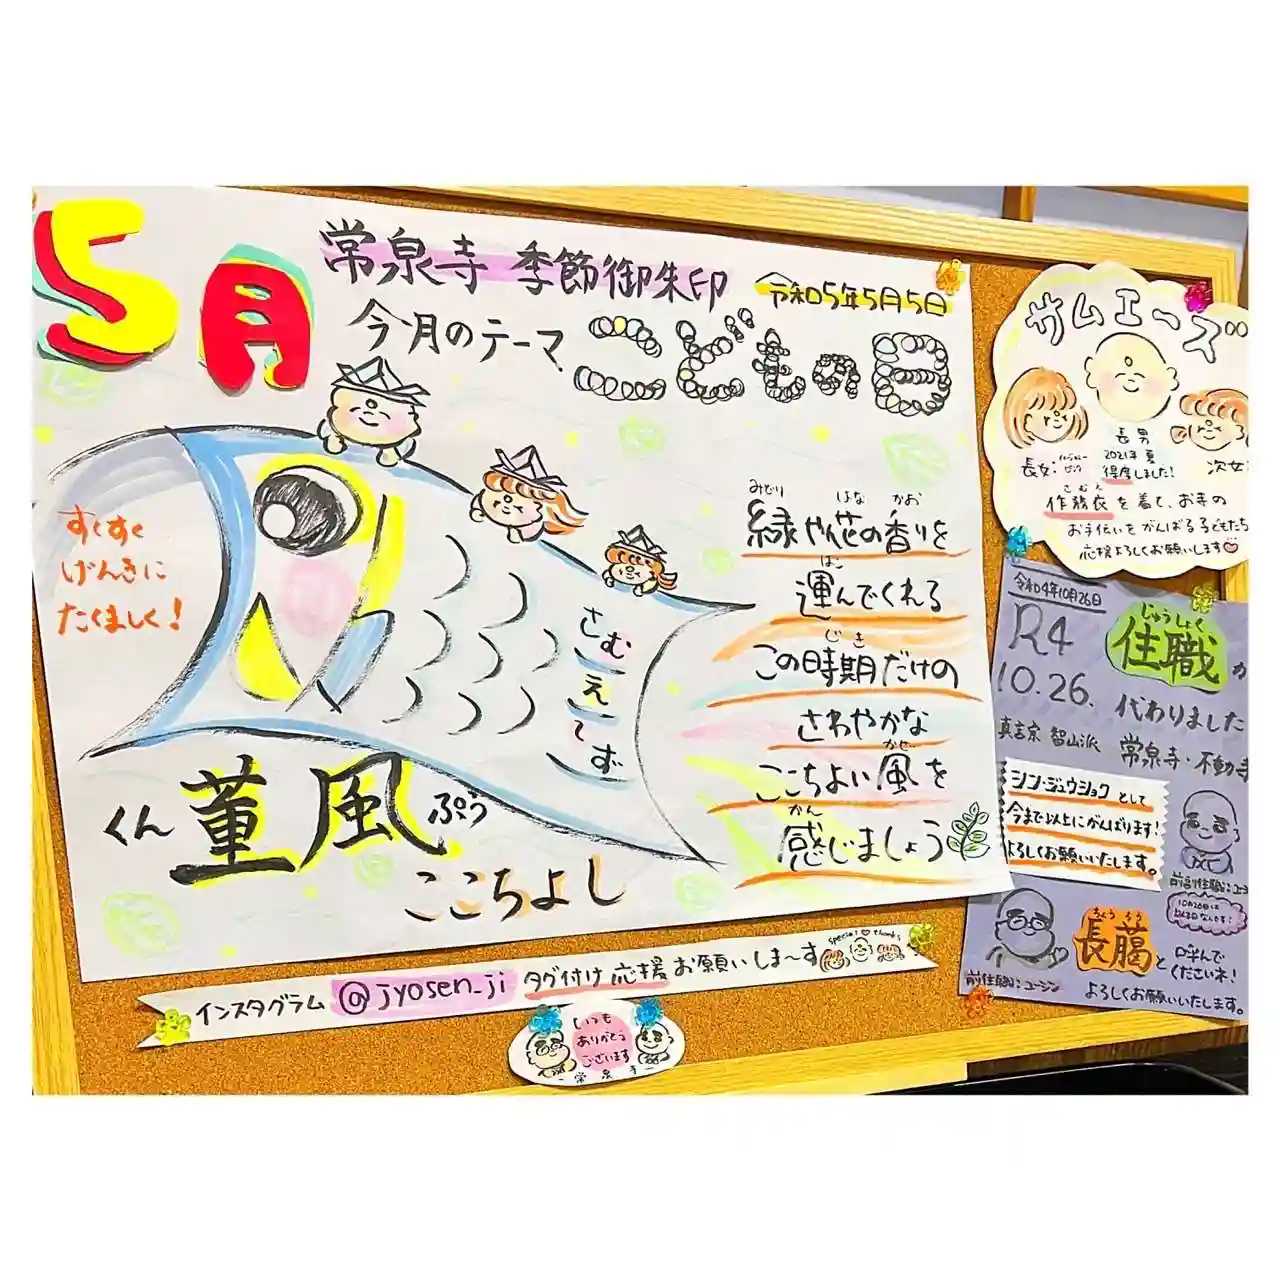 5月
常泉寺 季節御朱印
令和5年5月5日
今月のテーマ、こどもの日
すくすく
げんきに
たくましく!
さむえーず
みどり はな かお
緑や花の香りを
はこ
運んでくれる
じき
この時期だけの
さわやかな
かぜ
ここちよい風を
かん
感じましょう
くん 董風 ぷう
ここちよし
インスタグラム @jyosen_ji タグ付け応援お願いしま〜す
special thanks
いつも
ありがとう
ございます
常泉寺
サムエーズ
長男
2021年夏
得度しました!
長女:
次女:
さむえ
作務衣を着て、お寺の
お手伝いをがんばる子どもたち
応援よろしくお願いします
令和4年10月26日
R4
10.26.
じゅうしょく
住職が
代わりました
真言宗 智山派
常泉寺・不動寺
シン・ジュウショクとして
今まで以上にがんばります!
よろしくお願いいたします。
前副住職:ユーシン
ちょうろう
長﨟と
呼んで
くださいネ!
前住職:ユージン
よろしくお願いいたします。